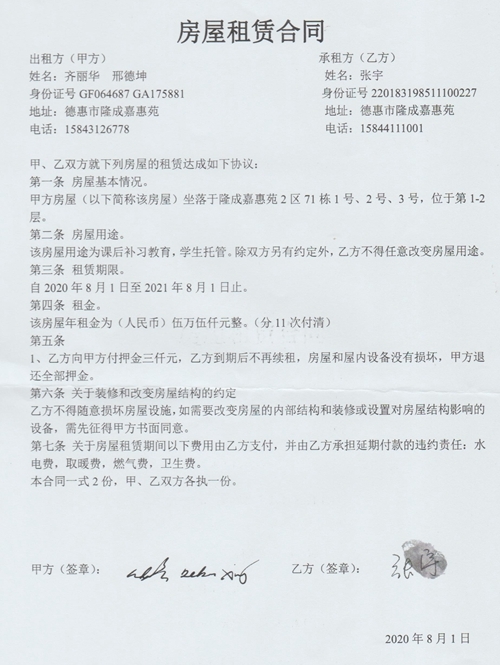 房屋租赁合同
出租方（甲方） 承租方（乙方）
姓名：齐丽华 邢德坤 姓名：张宇
身份证号 GF064687 GA175881 身份证号 220183198511100227
地址：德惠市隆成嘉惠苑 地址：德惠市隆成嘉惠苑
电话：15843126778 电话：15844111001
甲、乙双方就下列房屋的租赁达成如下协议：
第一条 房屋基本情况。
甲方房屋（以下简称该房屋）坐落于隆成嘉惠苑 2 区 71 栋 1 号、2 号、3 号，位于第 1-2
层。
第二条 房屋用途。
该房屋用途为课后补习教育，学生托管。除双方另有约定外，乙方不得任意改变房屋用途。
第三条 租赁期限。
自 2020 年 8 月 1 日至 2021 年 8 月 1 日止。
第四条 租金。
该房屋年租金为（人民币）伍万伍仟元整。（分 11 次付清）
第五条
1、乙方向甲方付押金三仟元，乙方到期后不再续租，房屋和屋内设备没有损坏，甲方退
还全部押金。
第六条 关于装修和改变房屋结构的约定
乙方不得随意损坏房屋设施，如需要改变房屋的内部结构和装修或设置对房屋结构影响的
设备，需先征得甲方书面同意。
第七条 关于房屋租赁期间以下费用由乙方支付，并由乙方承担延期付款的违约责任：水
电费，取暖费，燃气费，卫生费。
本合同一式 2 份，甲、乙双方各执一份。
甲方（签章）： 乙方（签章）： 张宇
2020 年 8 月 1 日